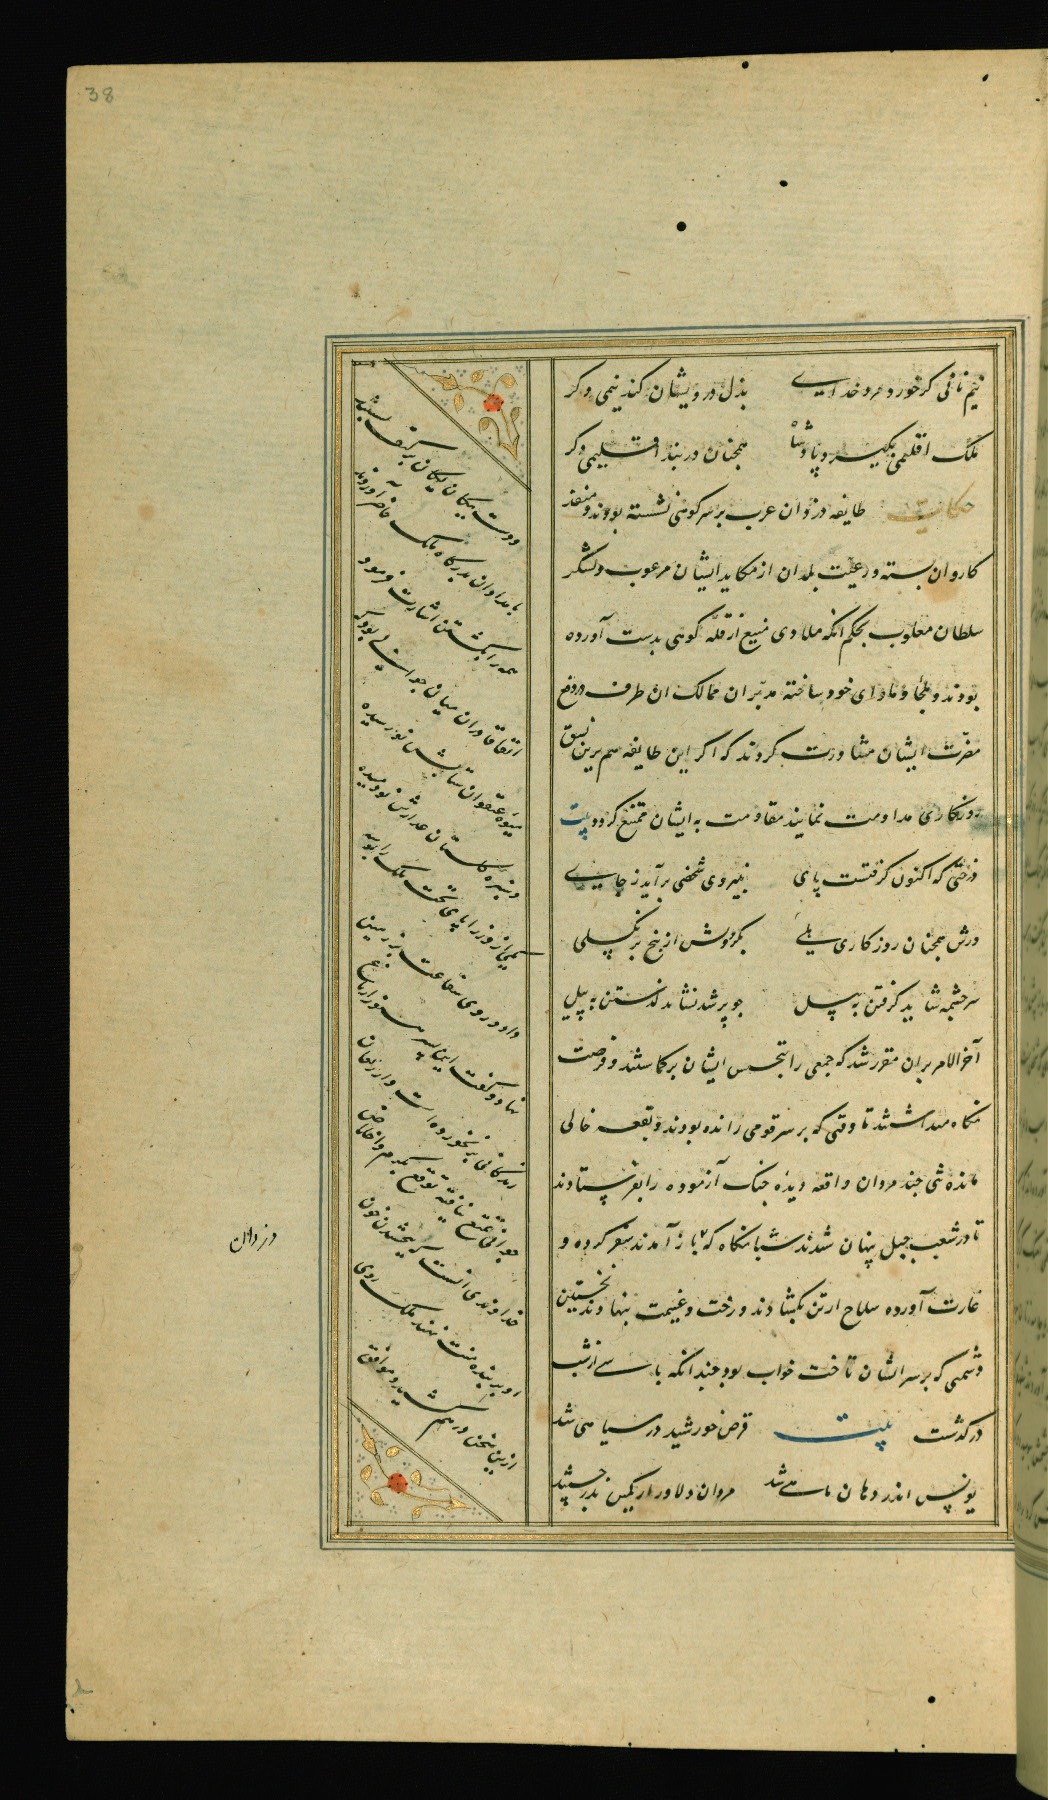 38
نیم نانی کر خورد مرد خدای    بذل درویشان کند نیمی دکر
ملک اقلیمی بکیرد پادشاه    همچنان در بند اقلیمی دکر
حکایت طایفه دزدان عرب بر سر کوهی نشسته بودند و منفذ
کاروان بسته و رعیّت بلدان از مکاید ایشان مرعوب و لشکر
سلطان مغلوب بحکم انکه ملاذی منیع از قلّه کوهی بدست آورده
بودند و ملجأ و ماوای خود ساخته مدبّران ممالک ان طرف در دفع
مضرّت ایشان مشاورت کردند که اکر این طایفه هم برین نسق
روزکاری مداومت نمایند مقاومت به ایشان ممتنع کردد بیت
درختی که اکنون کرفتست پای    بنیروی شخصی برآید ز جای
ورش همچنان روزکاری هلی    بکردونش از بیخ بر نکسلی
سر چشمه شاید کرفتن به بیل    چو پر شد نشاید کذشتن به پیل
آخر الامر بران مقرر شد که جمعی را بتجسس ایشان برکماشتند و فرصت
نکاه میداشتند تا وقتی که بر سر قومی رانده بودند و بقعه خالی
مانده تنی چند مردان واقعه دیده جنک آزموده را بفرستادند
تا در شعب جبل پنهان شدند شبانکاه که باز آمدند سفر کرده و
غارت آورده سلاح ازتن بکشادند و رخت و غنیمت بنهادند نخستین
دشمنی که بر سر ایشان تاخت خواب بود چندانکه پاسی از شب
درکذشت    بیت    قرص خورشید در سیاهی شد
یونس اندر دهان ماهی شد    مردان دلاور از کمین بدر جستند
و دست یکان یکان بر کتف بستند
بامدادان بدرکاه ملک حاضر آوردند
همه را بکشتن اشارت فرمود
اتفاقا دران میان جوانی بود که
میوه عنفوان شبابش نو رسیده
و سبزه کلستان عذارش نو دمیده
یکی از وزرا پای تخت ملک را بوسه
داد و روی شفاعت بر زمین
نهاد و کفت این پسر هنوز از باغ
زندکانی بر نخورده است و از ریعان
جوانی تمتع نیافته توقع بکرم و اخلاق
خداوندی انست که ببخشیدن خون
او بر بنده منت نهند ملک روی
ازین سخن درهم کشید و موافق
دزدان